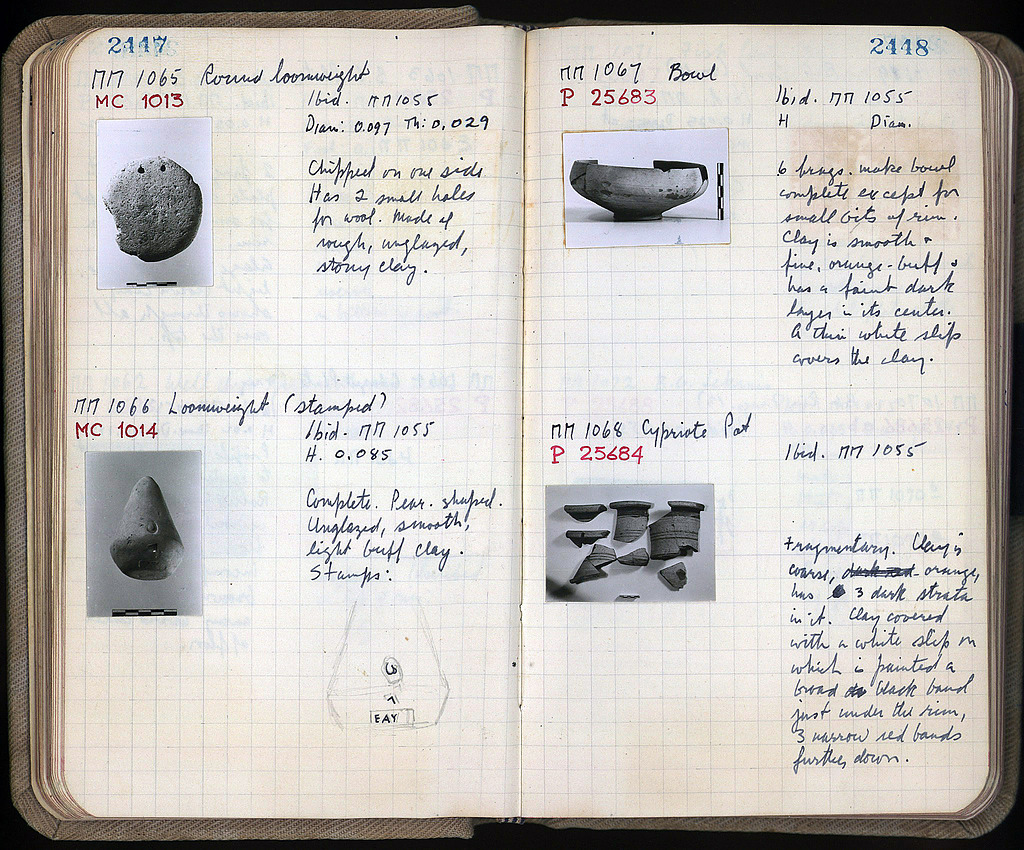 2447
ΠΠ 1065 Round loomweight
MC 1013
Ibid. ΠΠ 1055
Diam: 0.097 Th: 0.029
Chipped on one side
Has 2 small holes
for wool. Made of
rough, unglazed,
stony clay.
ΠΠ 1066 Loomweight (stamped)
MC 1014
Ibid. ΠΠ 1055
H. 0.085
Complete. Pear-shaped.
Unglazed, smooth,
light buff clay.
Stamps:
EAY
2448
ΠΠ 1067 Bowl
P 25683
Ibid. ΠΠ 1055
H Diam.
6 frags. make bowl
complete except for
small bits of rim.
Clay is smooth +
fine, orange-buff +
has a faint dark
layer in its center.
A thin white slip
covers the clay.
ΠΠ 1068 Cypriote Pot
P 25684
Ibid. ΠΠ 1055
Fragmentary. Clay is
coarse, dark red orange,
has 3 dark strata
in it. Clay covered
with a white slip on
which is painted a
broad black band
just under the rim,
3 narrow red bands
further down.